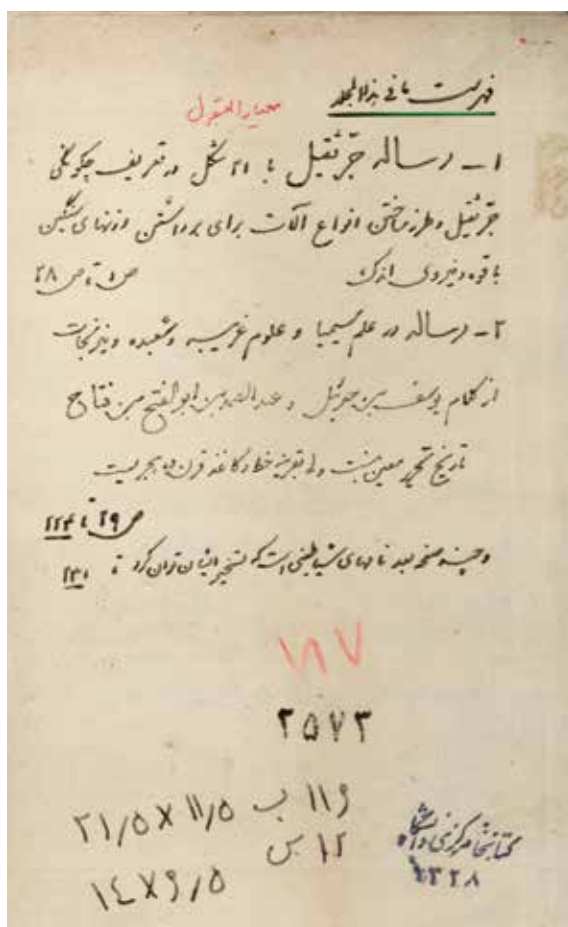 فهرست ما فی هذا المجلد
معیار العقول
۱ـ رساله جرّثقیل با ۲۱ شکل در تعریف چگونگی
جرّثقیل و طرز ساختن انواع آلات برای برداشتن وزنهای سنگین
با قوه و نیروی اندک ص ۱ تا ص ۲۸
۲ـ رساله در علم سیمیا و علوم غریبه و شعبده و نیرنجات
از کلام یوسف بن و عبدالصمد بن ابوالفتح بن فتاح
تاریخ تحریر معین نیست ولی بقرینه خط و کاغذ قرن هجریست
ص ۲۹ تا ۲۲۴
و چند صفحه بعد نامهای شیاطینی است که تسخیر ایشان توان کرد تا ۲۳۱
۱۸۷
۲۵۷۳
۱۱۶ ب ۲۱/۵ X ۱۱/۵
۱۲ س
۱۴X۶/۵
کتابخانه مرکزی دانشگاه
۱۳۲۸